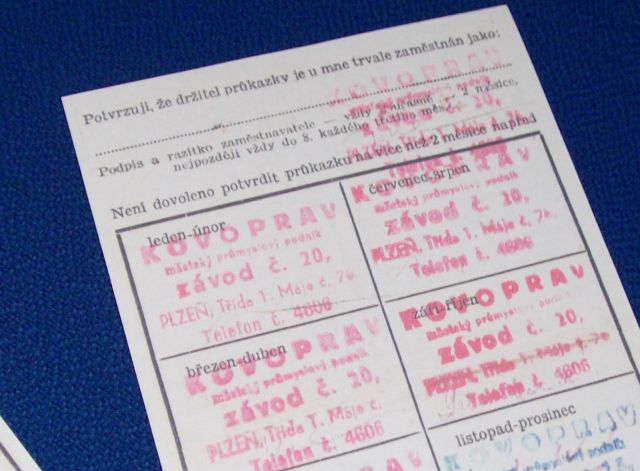 Potvrzuji, že držitel průkazky je u mne trvale zaměstnán jako:
Podpis a razítko zaměstnavatele — vždy závazně — 2 měsíce,
nejpozději vždy do 8. každého třetího měsíce.
Není dovoleno potvrdit průkazku na více než 2 měsíce napřed
leden-únor
KOVOPRAV
městský průmyslový podnik
závod č. 20,
PLZEŇ, Třída 1. Máje č. 76.
Telefon č. 4606
červenec-srpen
KOVOPRAV
městský průmyslový podnik
závod č. 20,
PLZEŇ, Třída 1. Máje č. 76.
Telefon č. 4606
březen-duben
KOVOPRAV
městský průmyslový podnik
závod č. 20,
PLZEŇ, Třída 1. Máje č.
Telefon č. 4606
září-říjen
KOVOPRAV
městský průmyslový podnik
závod č. 20,
PLZEŇ, Třída 1. Máje č. 76
Telefon č. 4606
listopad-prosinec
KOVOPRAV